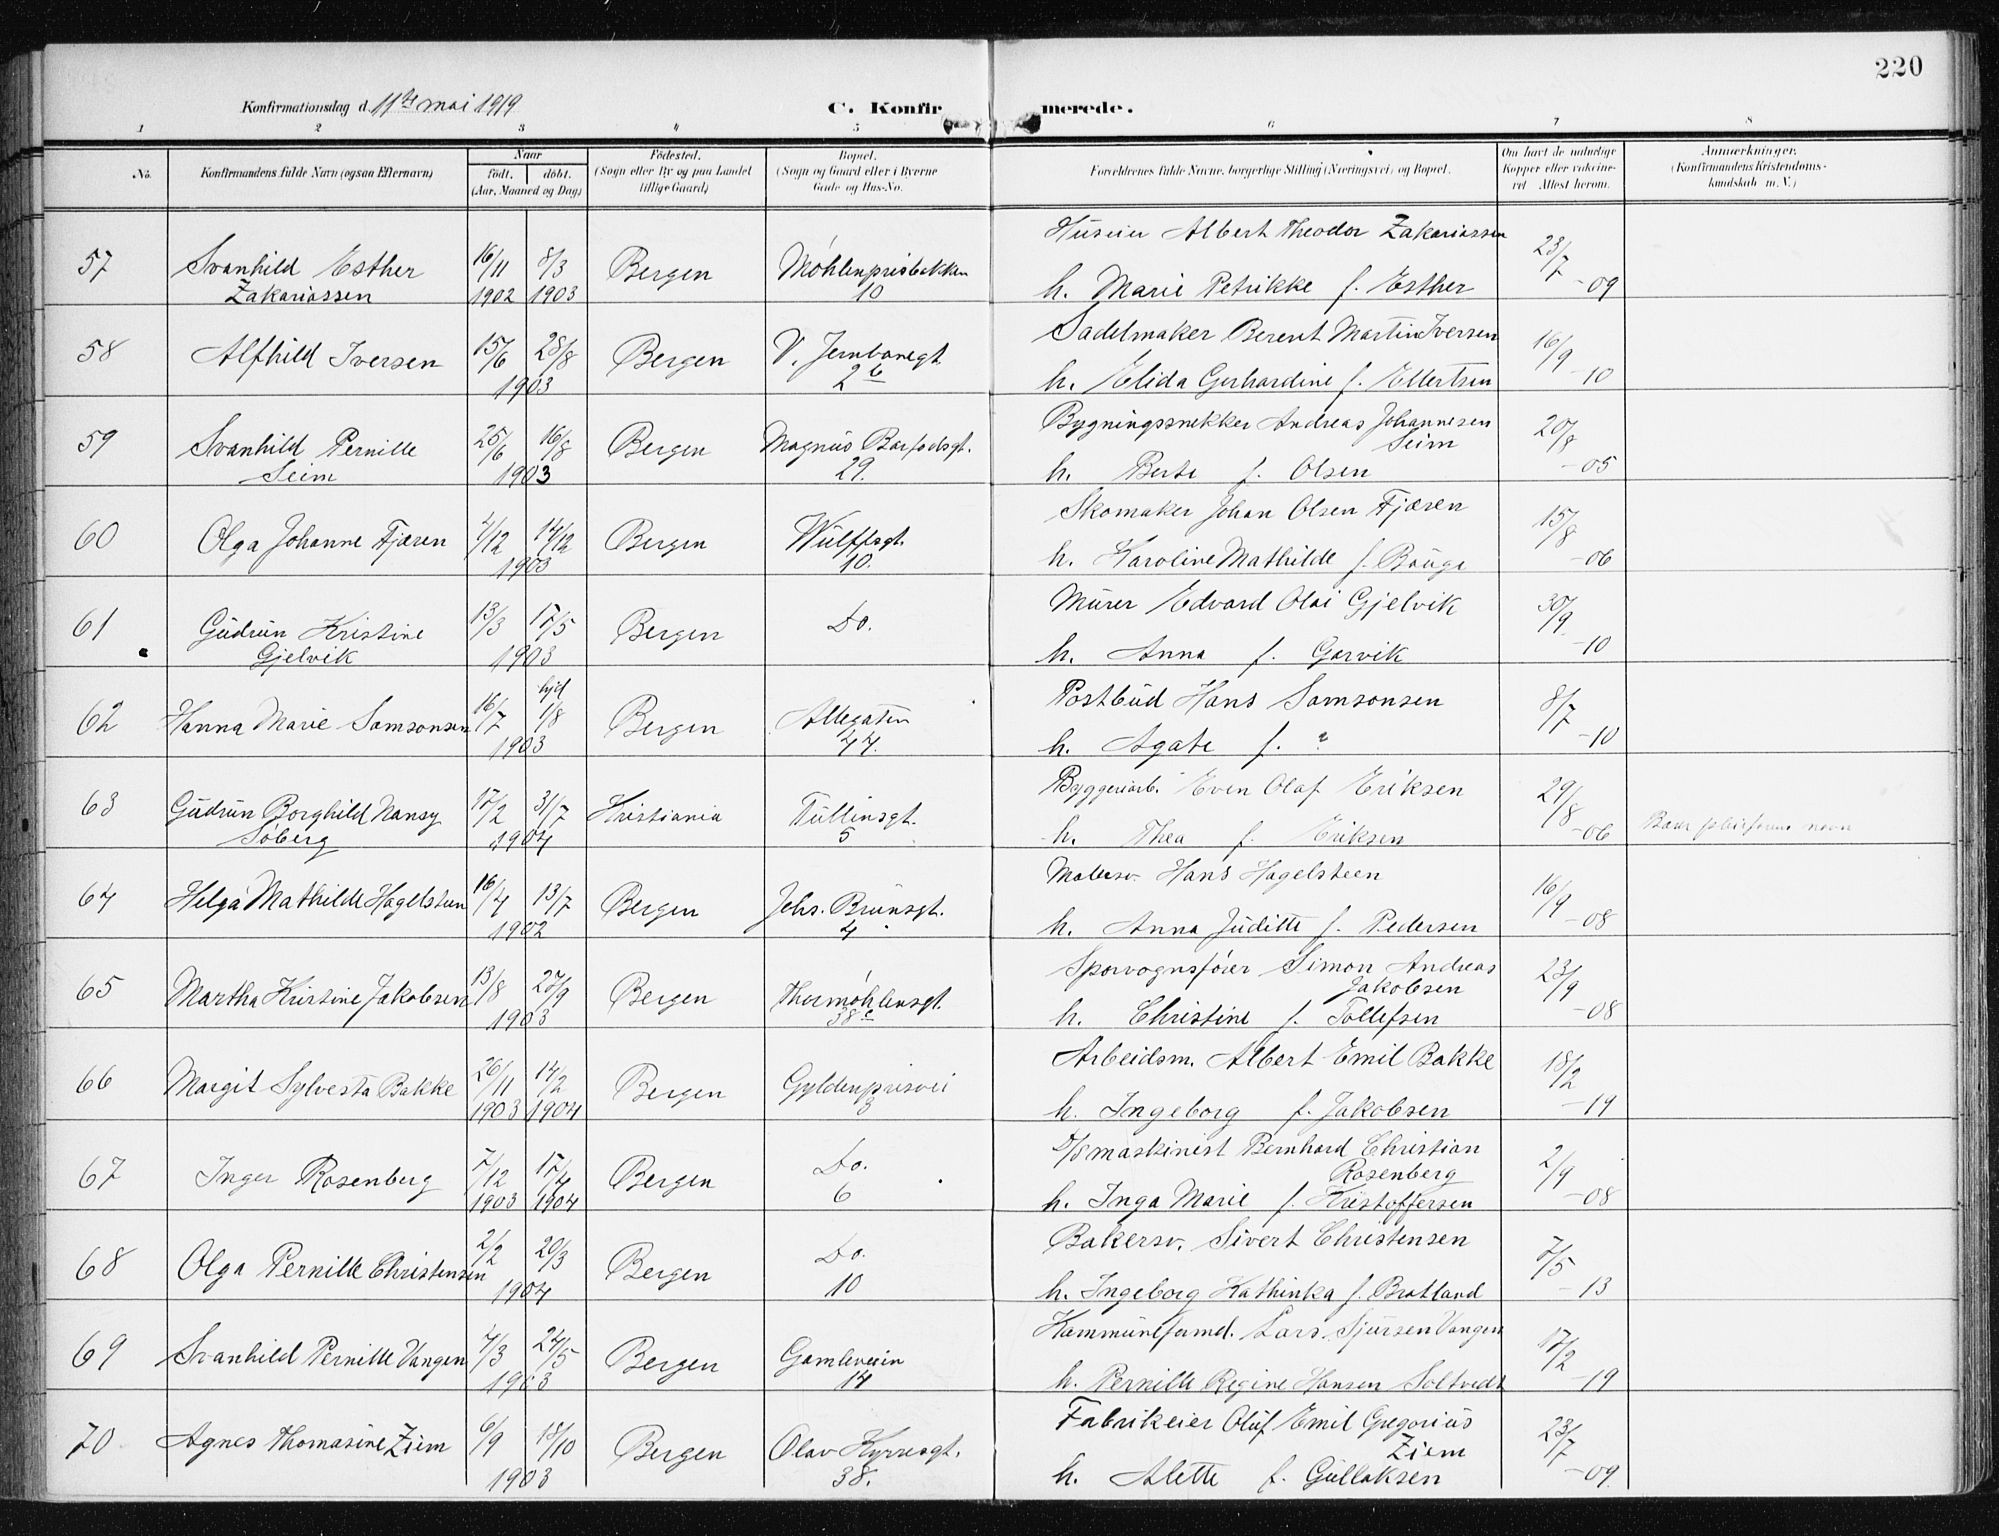 220
Konfirmationsdag d. 11te mai 1919
C. Konfirmerede.
1 2 3 4 5 6 7 8
No.
Konfirmandens fulde Navn (ogsaa Efternavn)
Naar
født. døbt.
(Aar, Maaned og Dag)
Fødested.
(Sogn eller By og paa Landet
tillige Gaard)
Bopæl.
(Sogn og Gaard eller i Byerne
Gade og Hus-No.
Forældrenes fulde Navne, borgerlige Stilling (Næringsvei) og Bopæl.
Om havt de naturlige
Kopper eller vaksine-
ret Attest herom.
Anmærkninger.
(Konfirmandens Kristendoms-
kundskab m. V.)
Huseier Albert Theodor Zakariassen
57 Svanhild Esther 16/11 8/3 Bergen Møhlenprisbakken 23/7
Zakariassen 1902 1903 10 h. Marie Petrikke f. Esther -09
Sadelmaker Berent Martin Iversen
58 Alfhild Iversen 15/6 28/8 Bergen V. Jernbanegt. 16/9
1903 2b h. Elida Gerhardine f. Ellertsen -10
Bygningssnekker Andreas Johannesen
Seim
59 Svanhild Pernille 25/6 16/8 Bergen Magnus Barfodsgt. 20/8
Seim 1903 29. h. Berte f. Olsen -05
Skomaker Johan Olsen Fjæren
60 Olga Johanne Fjæren /12 14/12 Bergen Wulffsgt. 15/8
1903 10. h. Karoline Mathilde f. Bauge -06
Murer Edvard Olai Gjelvik
61 Gudrun Kristine 13/3 17/5 Bergen Do. 30/9
Gjelvik 1903 h. Anna f. Garvik -10
Postbud Hans Samsonsen
hjd
62 Hanna Marie Samsonsen 16/7 1/8 Bergen Allegaten 8/7
1903 44. h. Agate f. ? -10
Byggeriarb. Even Olaf Eriksen
63 Gudrun Borghild Nansy 17/2 31/7 Kristiania Tullinsgt. 29/8
Søberg 1904 5 h. Thea f. Eriksen -06 navn
Malersv. Hans Hagelsteen
64 Helga Mathilde Hagelsteen 16/4 13/7 Bergen Jchs. Brunsgt. 16/9
1902 4 h. Anna Juditte f. Pedersen -08
Sporvognsfører Simon Andreas
Jakobsen
65 Martha Kristine Jakobsen 13/8 27/9 Bergen Thormøhlensgt. 23/9
1903 38c h. Christine f. Tollefsen -08
Arbeidsm. Albert Emil Bakke
66 Margit Sylvesta Bakke 26/11 14/2 Bergen Gyldenprisvei 18/2
1903 1904 3 h. Ingeborg f. Jakobsen -19
D/S maskinist Bernhard Christian
Rosenberg
67 Inger Rosenberg 7/12 17/4 Bergen Do. 2/9
1903 1904 6 h. Inga Marie f. Kristoffersen -08
Bakersv. Sivert Christensen
68 Olga Pernille Christensen 2/2 20/3 Bergen Do. 7/5
1904 10 h. Ingeborg Kathinka f. Bratland -13
Kommuneformd. Lars Sjursen Vangen
69 Svanhild Pernille Vangen 4/3 24/5 Bergen Gamleveien 17/2
1903 14 h. Pernille Regine Hansen Soltvedt -19
Fabrikeier Oluf Emil Gregorius
Ziem
70 Agnes Thomasine Ziem 6/9 18/10 Bergen Olav Kyrresgt. 23/7
1903 38. h. Alette f. Gullaksen -09